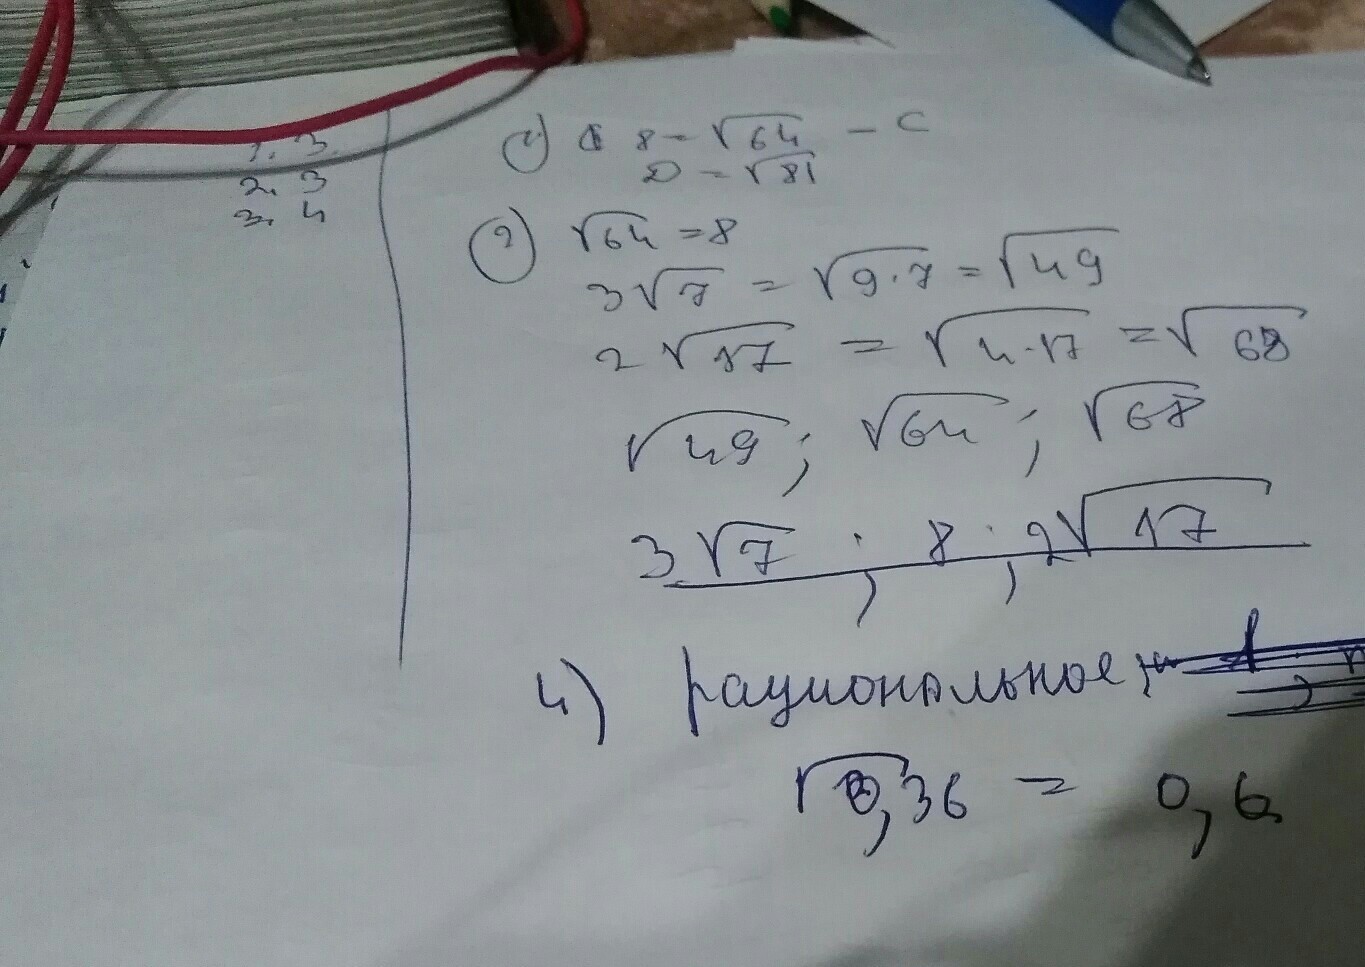 1. 3.
2. 3
3. 4
1) 8 = √64 - C
D = √81
2) √64 = 8
3√7 = √9·7 = √49
2√17 = √4·17 = √68
√49; √64; √68
3√7; 8; 2√17
4) рациональное,
√0,36 = 0,6